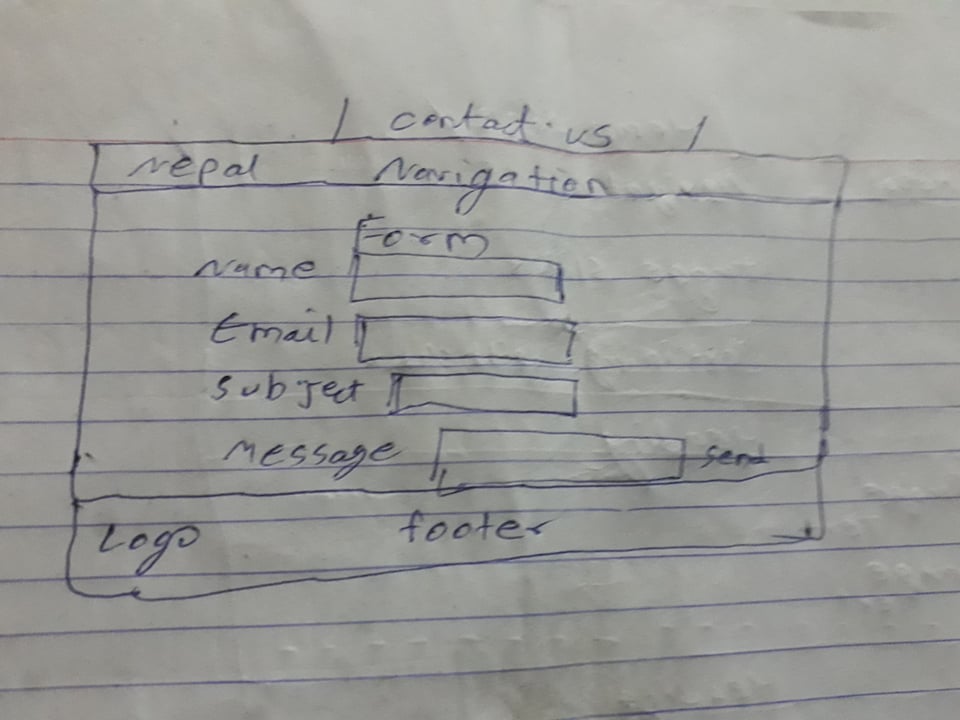 / contact us /
Nepal Navigation
Form
Name
Email
Subject
Message send
Logo footer